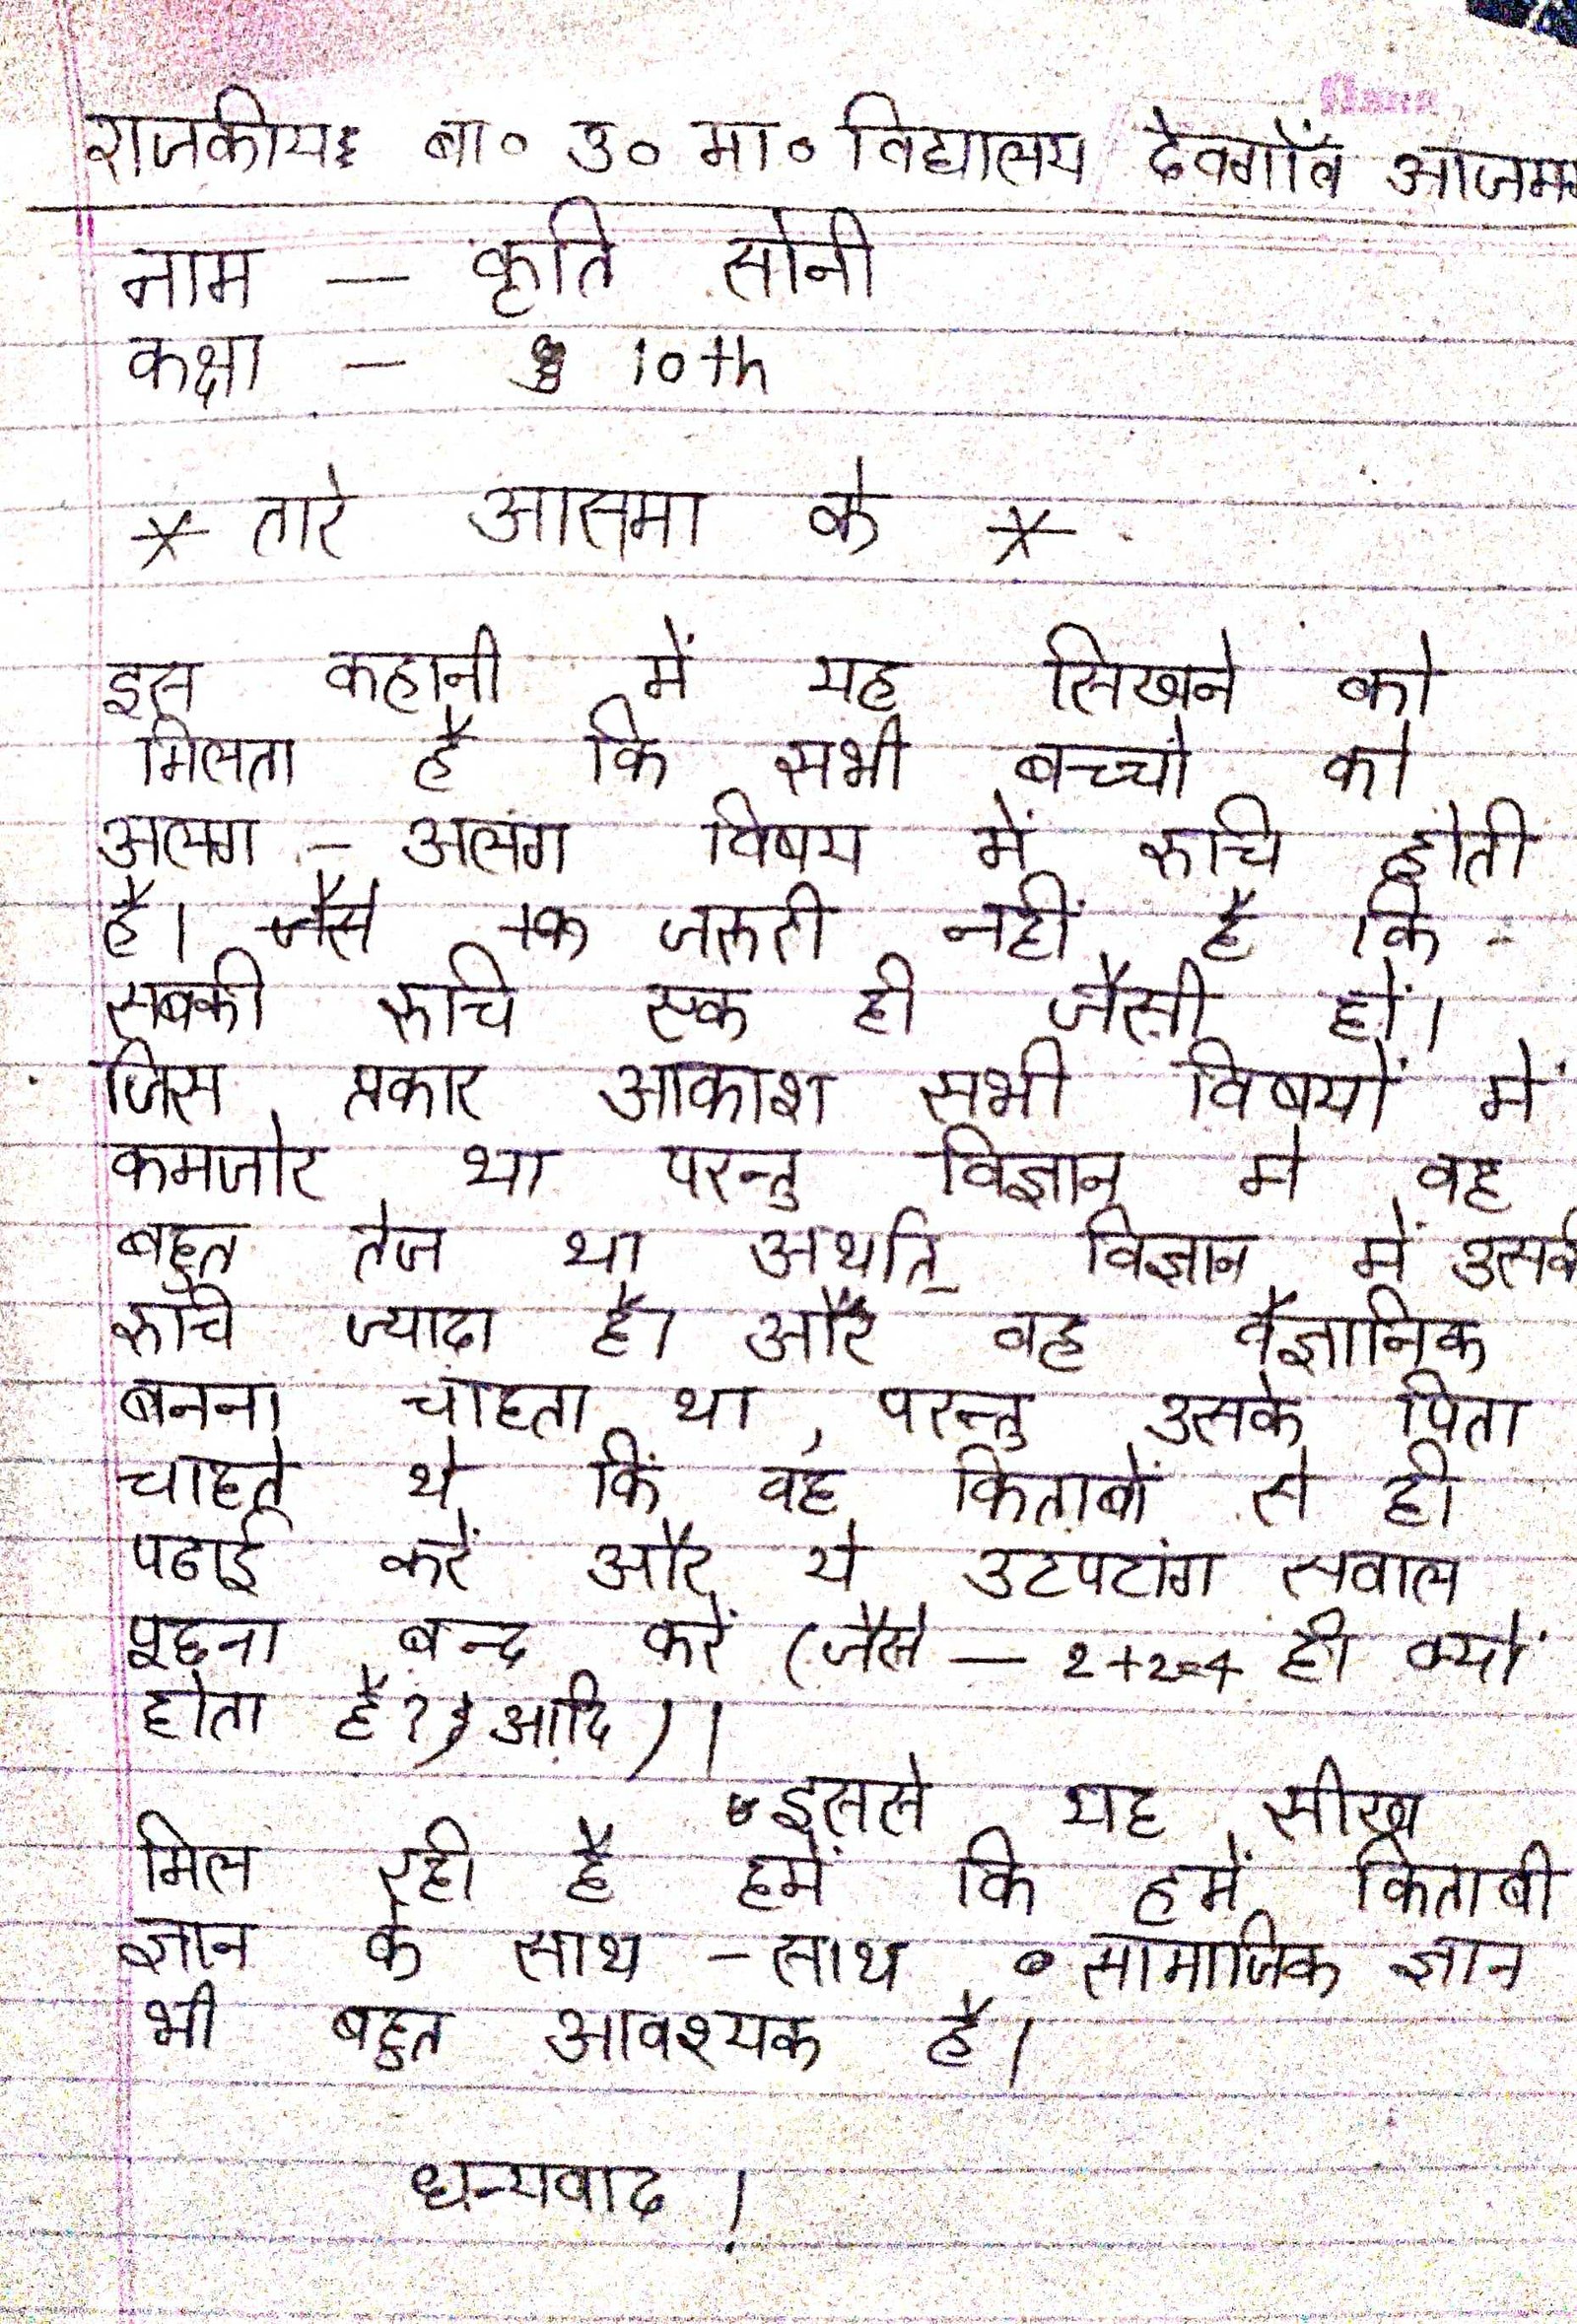 राजकीय बा० उ० मा० विद्यालय देवगाँव आजम
नाम – कृति सोनी
कक्षा – 10th
* तारे आसमा के *
इस कहानी में यह सिखने को
मिलता है कि सभी बच्चो को
अलग - अलग विषय में रुचि होती
है। जरुरी नहीं है कि
सबकी रुचि एक ही जैसी हों।
जिस प्रकार आकाश सभी विषयों में
कमजोर था परन्तु विज्ञान मे वह
बहुत तेज था अर्थात् विज्ञान में
रुचि ज्यादा है। और वह वैज्ञानिक
बनना चाहता था, परन्तु उसके पिता
चाहते थे कि वह किताबों से ही
पढाई करें और ये उटपटांग सवाल
पूछना बन्द करें (जैसे – 2+2=4 ही क्यों
होता है?, आदि)।
इससे यह सीख
मिल रही है हमें कि हमें किताबी
ज्ञान के साथ - साथ सामाजिक ज्ञान
भी बहुत आवश्यक है।
धन्यवाद।